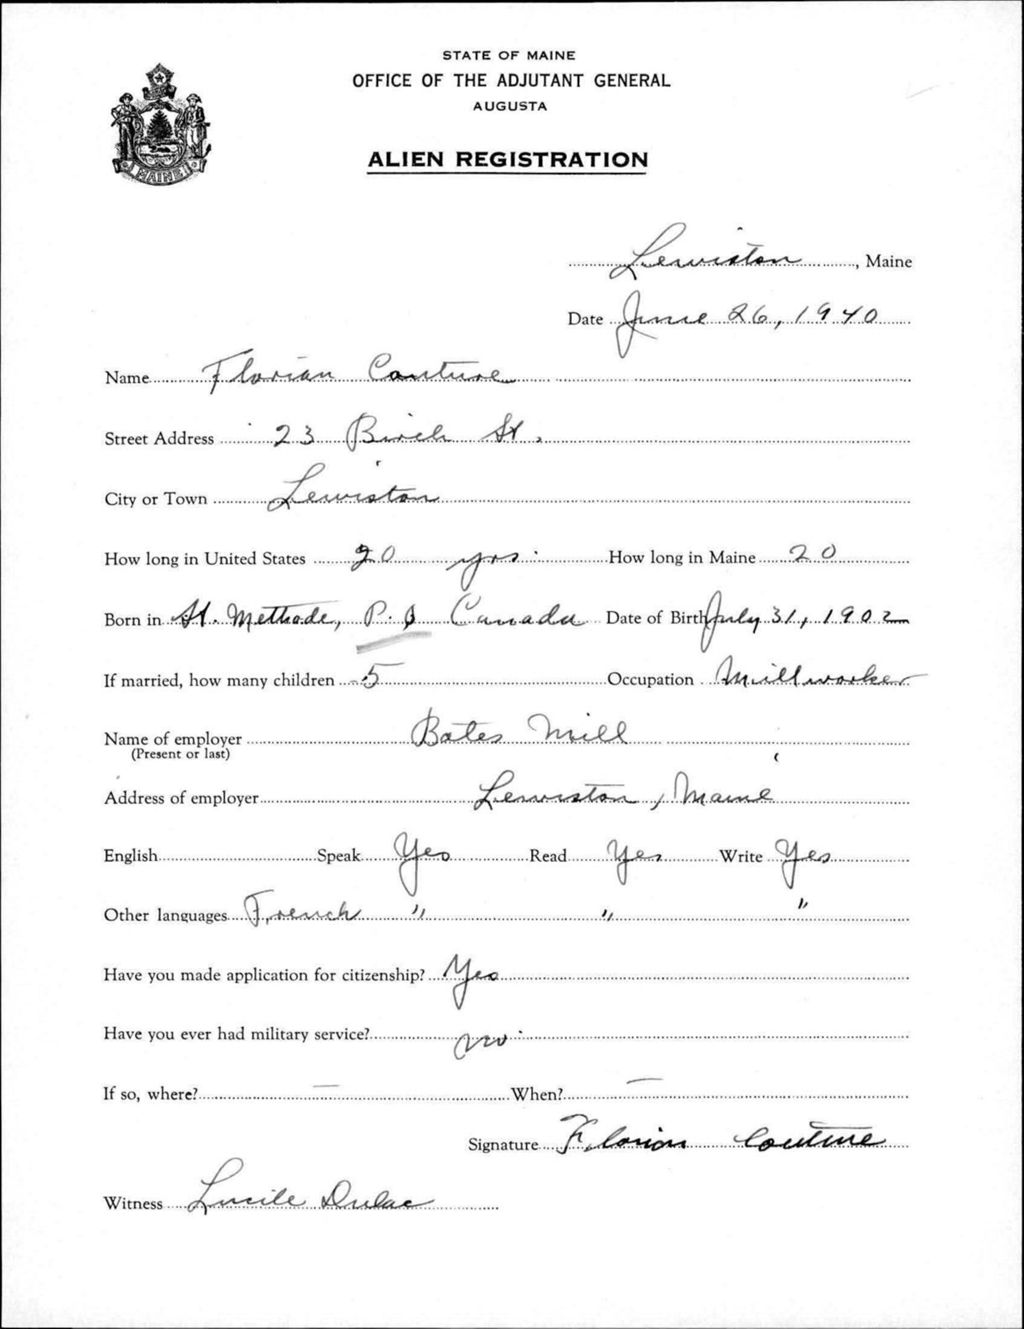 STATE OF MAINE
OFFICE OF THE ADJUTANT GENERAL
AUGUSTA
ALIEN REGISTRATION
MAINE
Lewiston, Maine
Date June 26, 1940
Name Florian Couture
Street Address 23 Birch St.
City or Town Lewiston
How long in United States 20 yrs. How long in Maine 20
Born in St. Methode, P.Q Canada Date of Birth July 31, 1902
If married, how many children 5 Occupation Millworker
Name of employer Bates Mill
(Present or last)
Address of employer Lewiston, Maine
English Speak Yes Read Yes Write Yes
Other languages French " " "
Have you made application for citizenship? Yes
Have you ever had military service? no
If so, where? — When? —
Signature Florian Couture
Witness Lucile Dulac